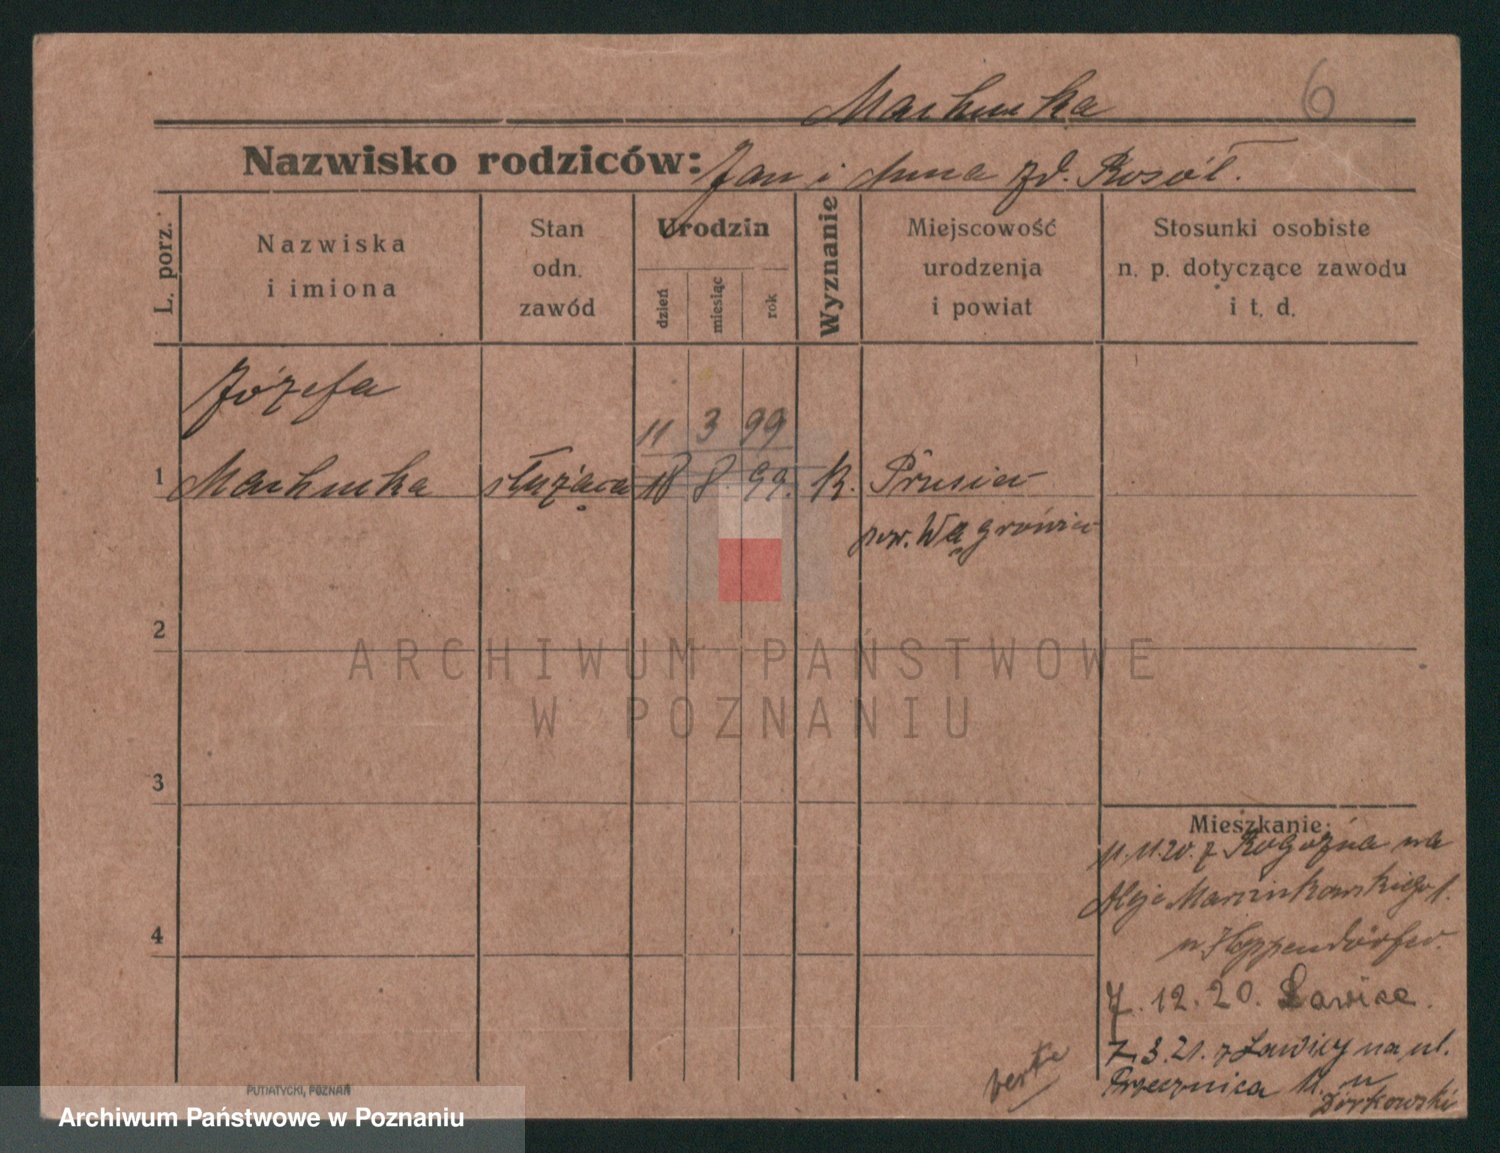 6
Machinka
Nazwisko rodziców: Jan i Anna zd. Rosół.
L. porz.
Nazwiska
i imiona
Stan
odn.
zawód
Urodzin
dzień
miesiąc
rok
Wyznanie
Miejscowość
urodzenia
i powiat
Stosunki osobiste
n. p. dotyczące zawodu
i t. d.
Józefa
11 3 99
1 służąca 18 8 99. k.
pow. Wągrówiec
2
ARCHIWUM PAŃSTWOWE
W POZNANIU
3
Mieszkanie:
11.11.20. z Rogoźna na
Aleje Marcinkowskiego 1.
u
4
7.12.20. Ławica.
7.3.21. z Ławicy na ul.
11. u
verte
PUTIATYCKI, POZNAŃ
Archiwum Państwowe w Poznaniu